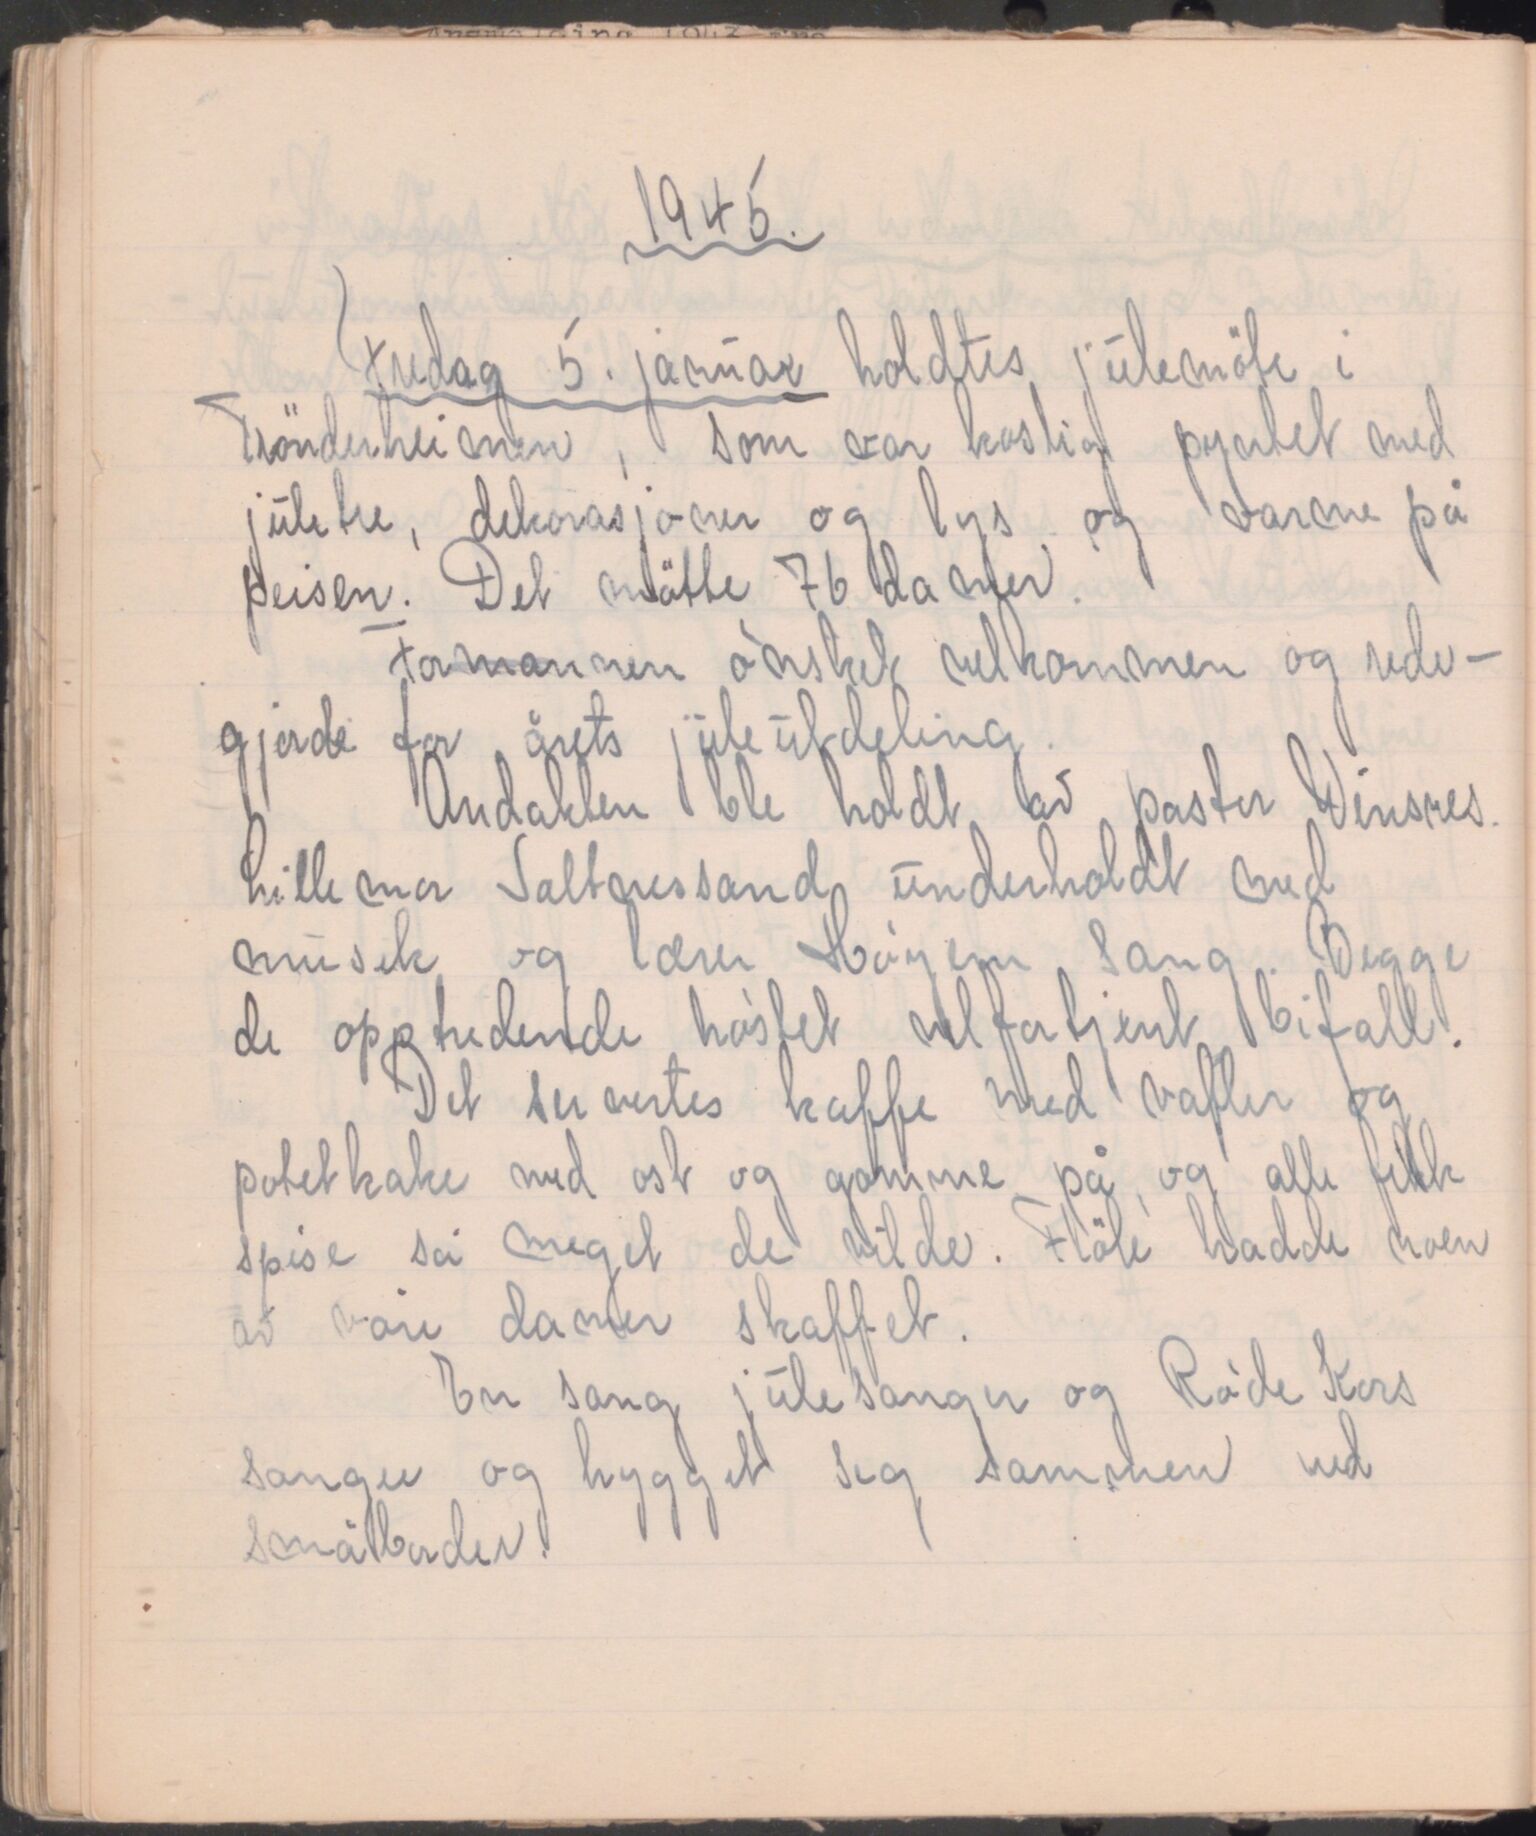 1945.
Fredag 5. januar holdtes julemöte i
Trönderheimen, som var kostig pyntet med
juletre, dekorasjoner og lys og varme på
peisen. Det mötte 76 damer.
Formannen ønsket velkommen og rede-
gjorde for årets juleutdeling.
Andakten ble holdt av pastor Winsnes.
Lillemor Saltnessand underholdt med
musik og lærer Høyem sang. Begge
de opptredende høstet velfortjent bifall.
Det servertes kaffe med vafler og
potetkake med ost og gomme på, og alle fikk
spise så meget de vilde. Flöte hadde noen
av våre damer skaffet.
En sang julesanger og Røde Kors
sanger og hygget seg sammen ved
småborder.